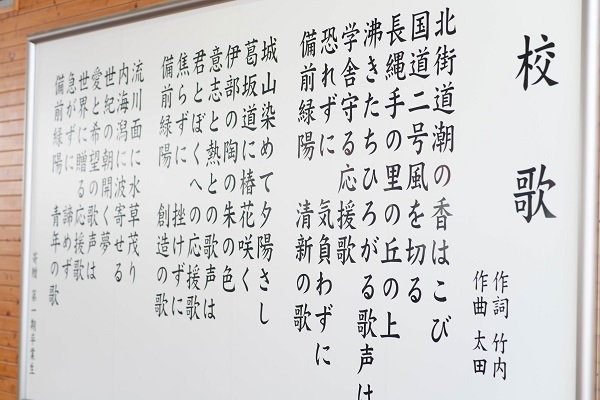 校歌
作詞 竹内
作曲 太田
北街道潮の香はこび
国道二号風を切る
長縄手の里の丘の上
沸きたちひろがる歌声は
学舎守る応援歌
恐れずに 気負わずに
備前緑陽 清新の歌
城山染めて夕陽さし
葛坂道に椿花咲く
伊部の陶の朱の色
意志と熱との歌声は
君とぼくへの応援歌
焦らずに 挫けずに
備前緑陽 創造の歌
流川面に水草茂り
内海潟に波寄せる
世紀の朝の開く夢
愛と希望の歌声は
世界に贈る応援歌
急がずに 諦めず
備前緑陽 青年の歌
寄贈 第一期卒業生